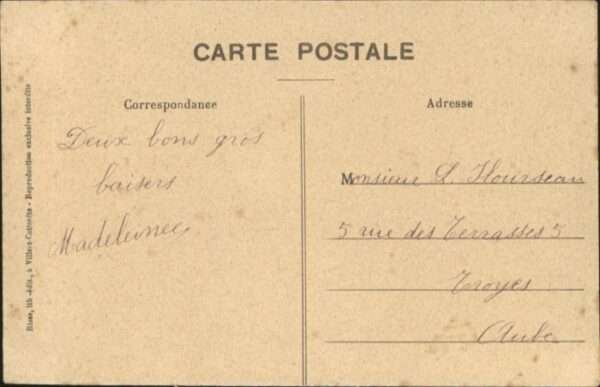 CARTE POSTALE
Correspondance
Deux bons gros
baisers
Madeleinee
Adresse
Monsieur L.
5 rue des Terrasses 5
Troyes
Aube
lib -édit., à Villers-Cotterêts - Reproduction exclusive interdite